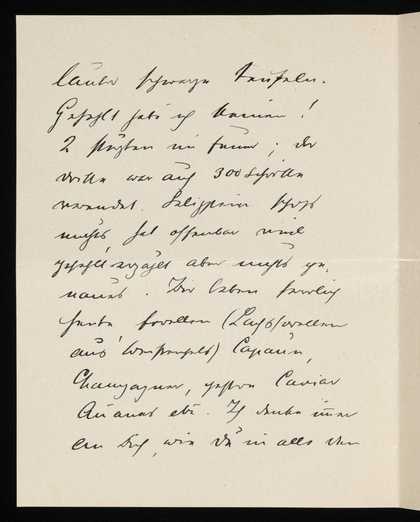 lauter schwarze Teufeln.
Gefehlt habe ich keinen!
2 stürzten im Feuer; der
dritte war auf 300 Schritte
verwundet. Seligstein schoss
nichts, hat offenbar viel
gefehlt, erzählt aber nichts ge-
naues. Wir leben herrlich
heute Forellen (Lachsforellen
aus Weissensee) Capaun,
Champagner, gestern Caviar
Ananas etc. Ich denke immer
an Dich, wie Du in alle den